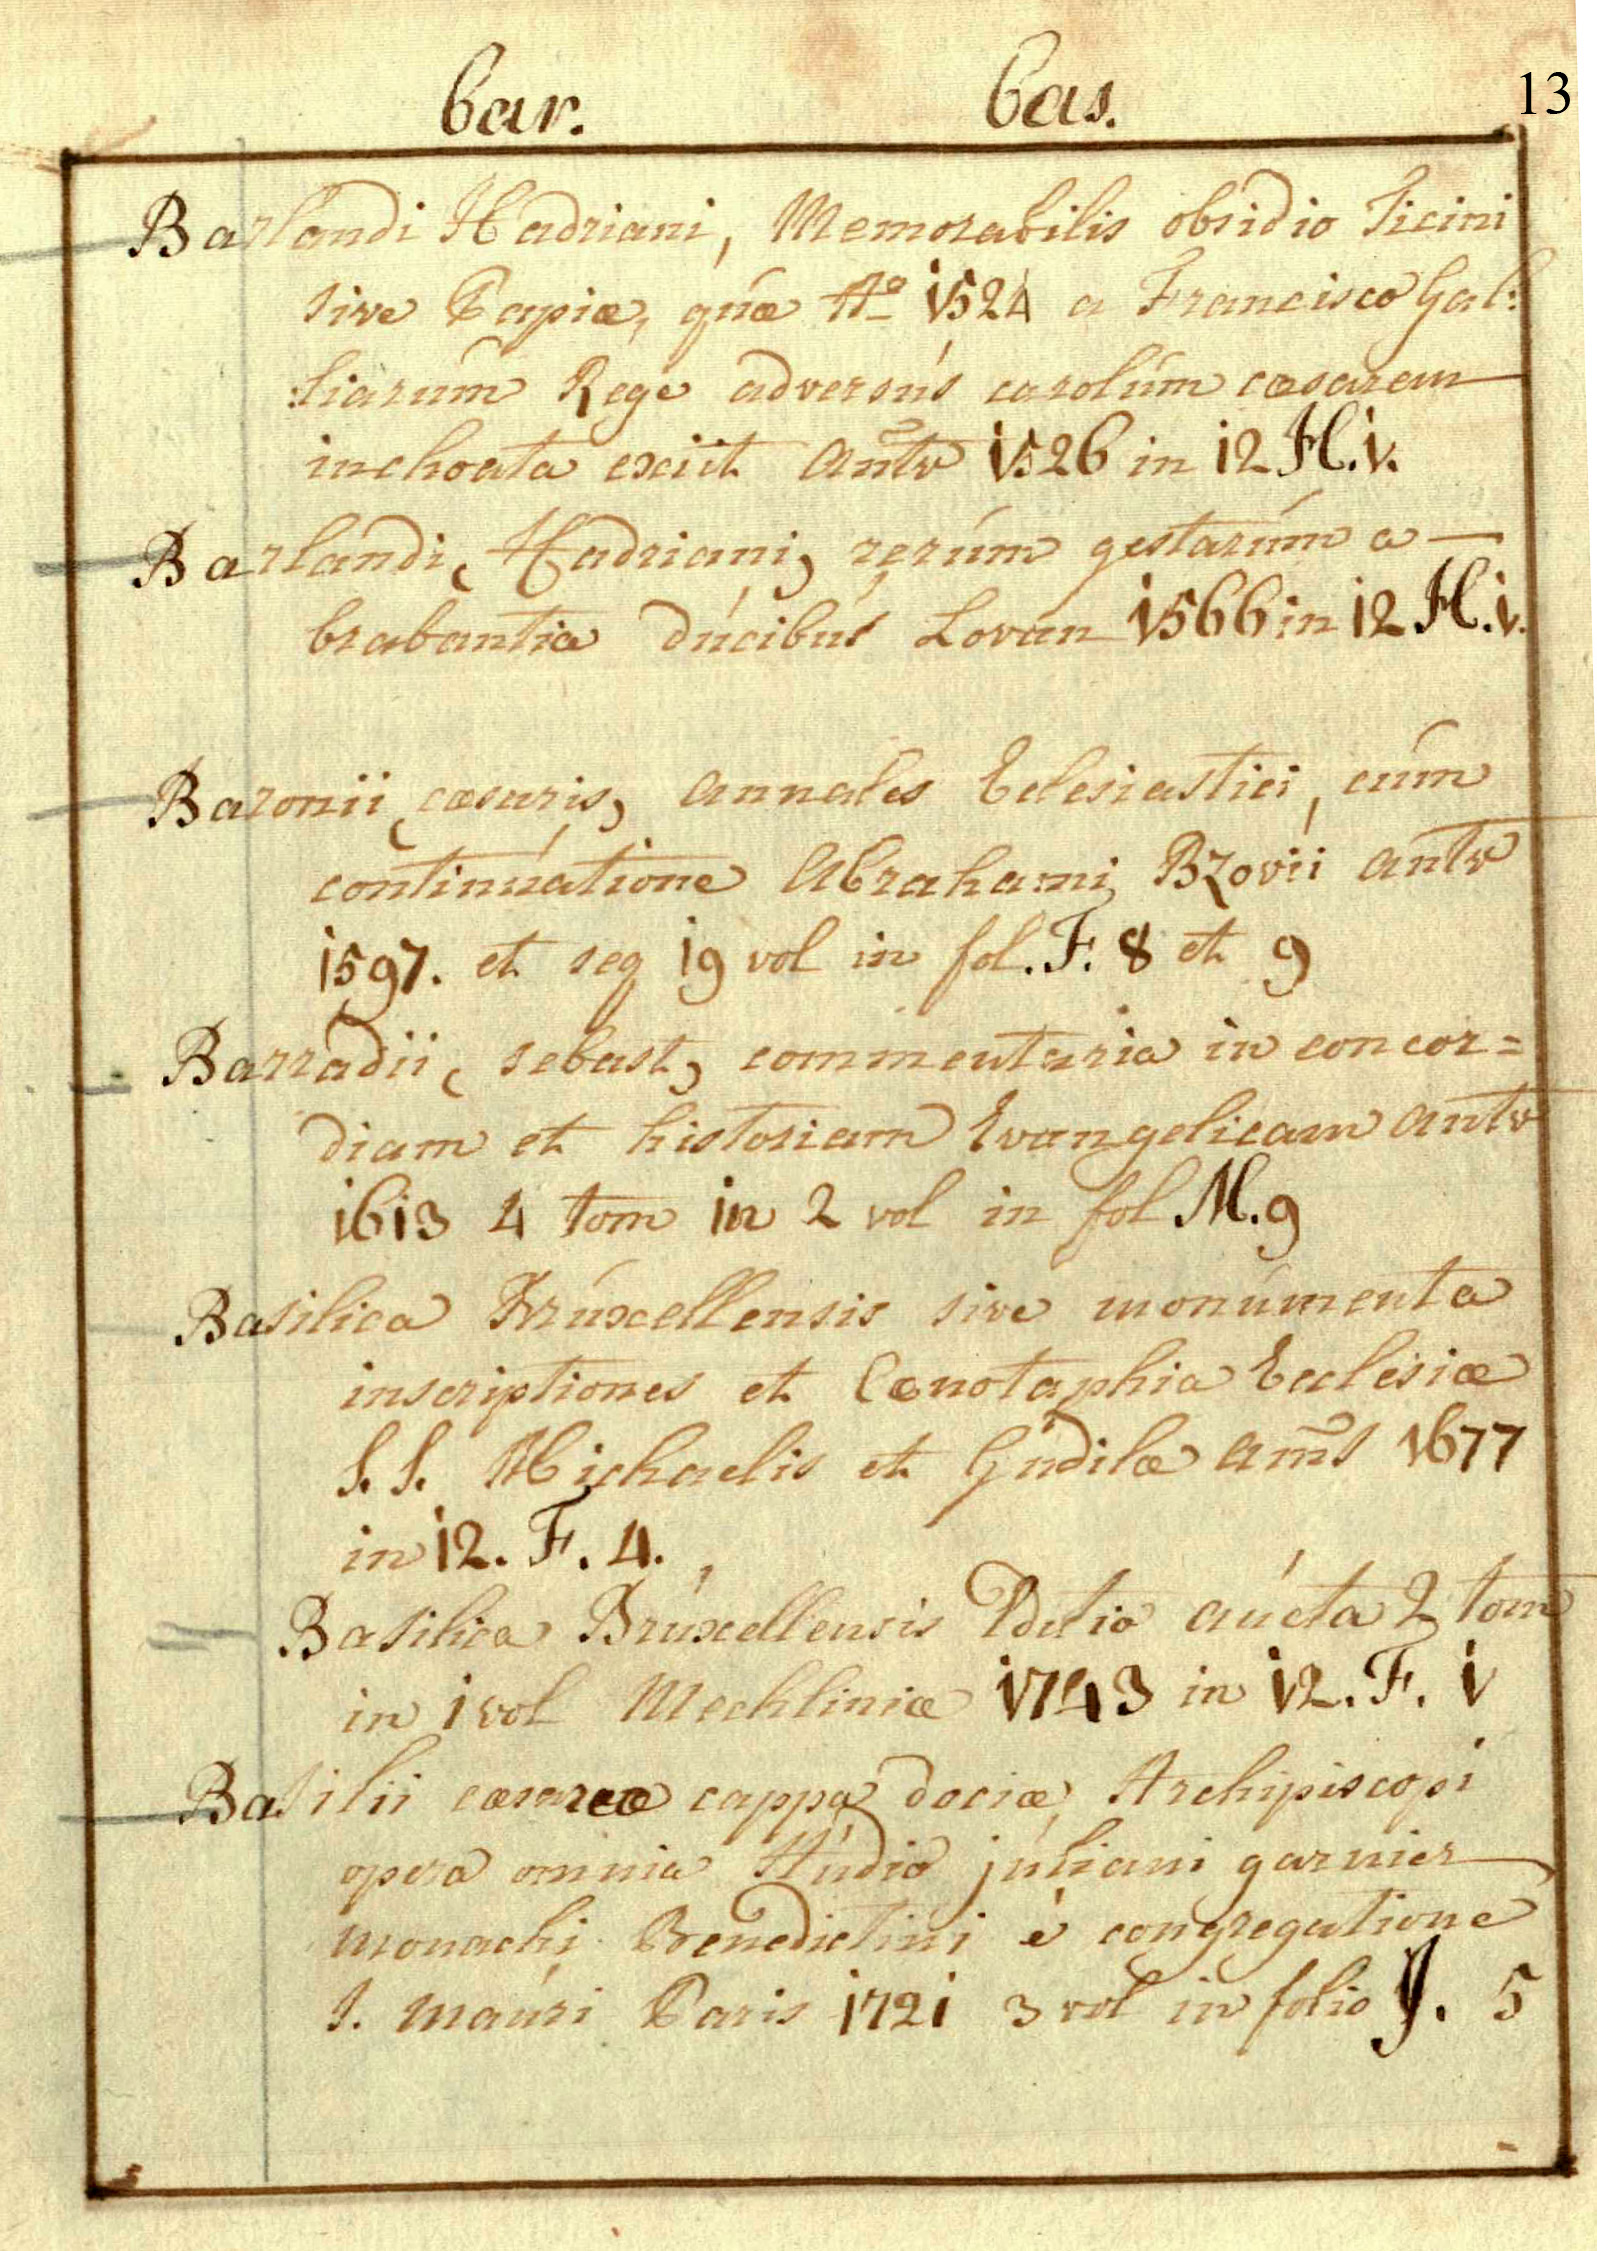 bar. bas. 13
Barlandi Hadriani, Memorabilis obsidio Ticini
sive Papiæ, quæ Aº 1524 a Francisco Gal:
:liarum Rege adversús carolúm cæsarem
inchoata exiit Antv 1526 in 12 H.1.
Barlandi, Hadriani, rerúm gestarúm a
brabantiæ dúcibús Lovan 1566 in 12 H.1.
Baronii (cæsaris) annales Eclesiastici, cúm
continúatione Abrahami Bzovii antv
1597. et seq 19 vol in fol. F. 8 et 9
Barradii (sebast) commentaria in concor=
diam et historiam Evangelicam antv
1613 4 tom in 2 vol in fol M.9
Basilica Brúxcellensis sive monúmenta
inscriptiones et Cænotaphia Ecclesiæ
S. S. Michaelis et Gúdilæ Ams 1677
in 12. F. 4.
Basilica Brúxcellensis Editio aúcta 2 tom
in 1 vol Mechliniæ 1743 in 12. F. 1
Basilii cæsareæ cappa dociæ Archipiscopi
opera omnia stúdio júliani garnier
monachi Benedictini è congregatione
S. maúri Paris 1721 3 vol in folio J. 5